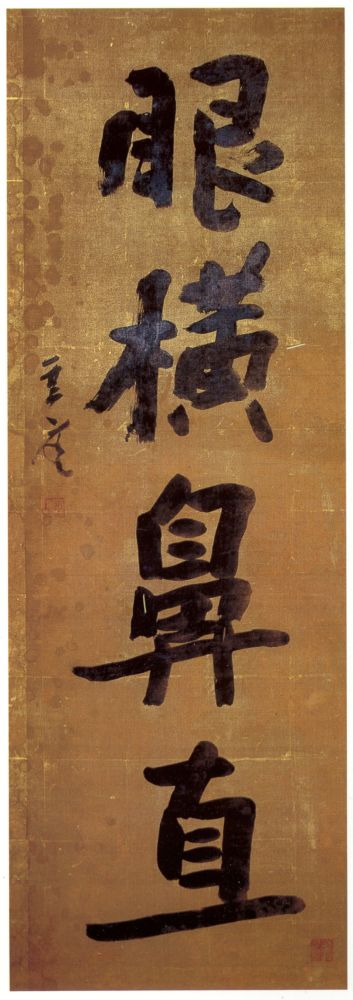 眼横鼻直